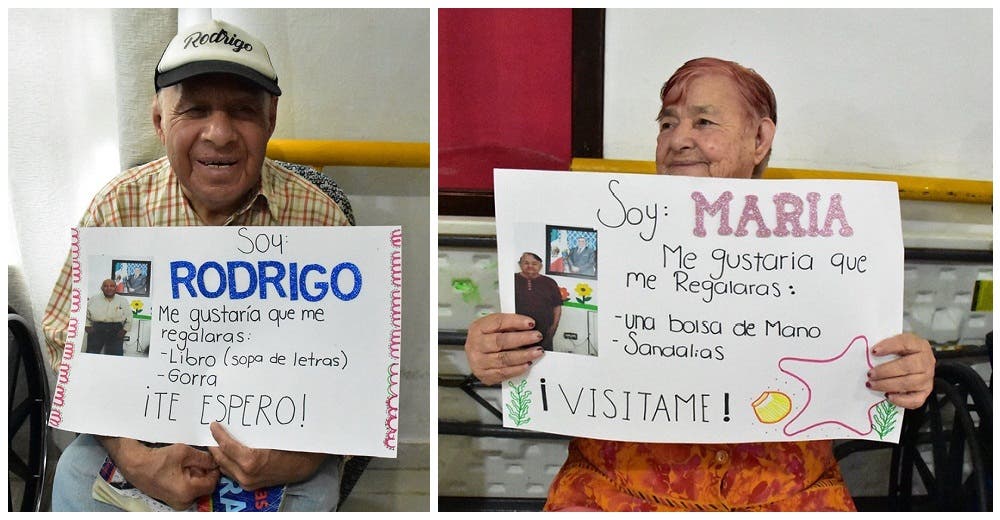 Rodrigo
Soy:
RODRIGO
Me gustaría que me
regalaras:
-Libro (sopa de letras)
-Gorra
¡TE ESPERO!
Soy: MARIA
Me gustaria que
me Regalaras:
-Una bolsa de Mano
-Sandalias
¡VISITAME!